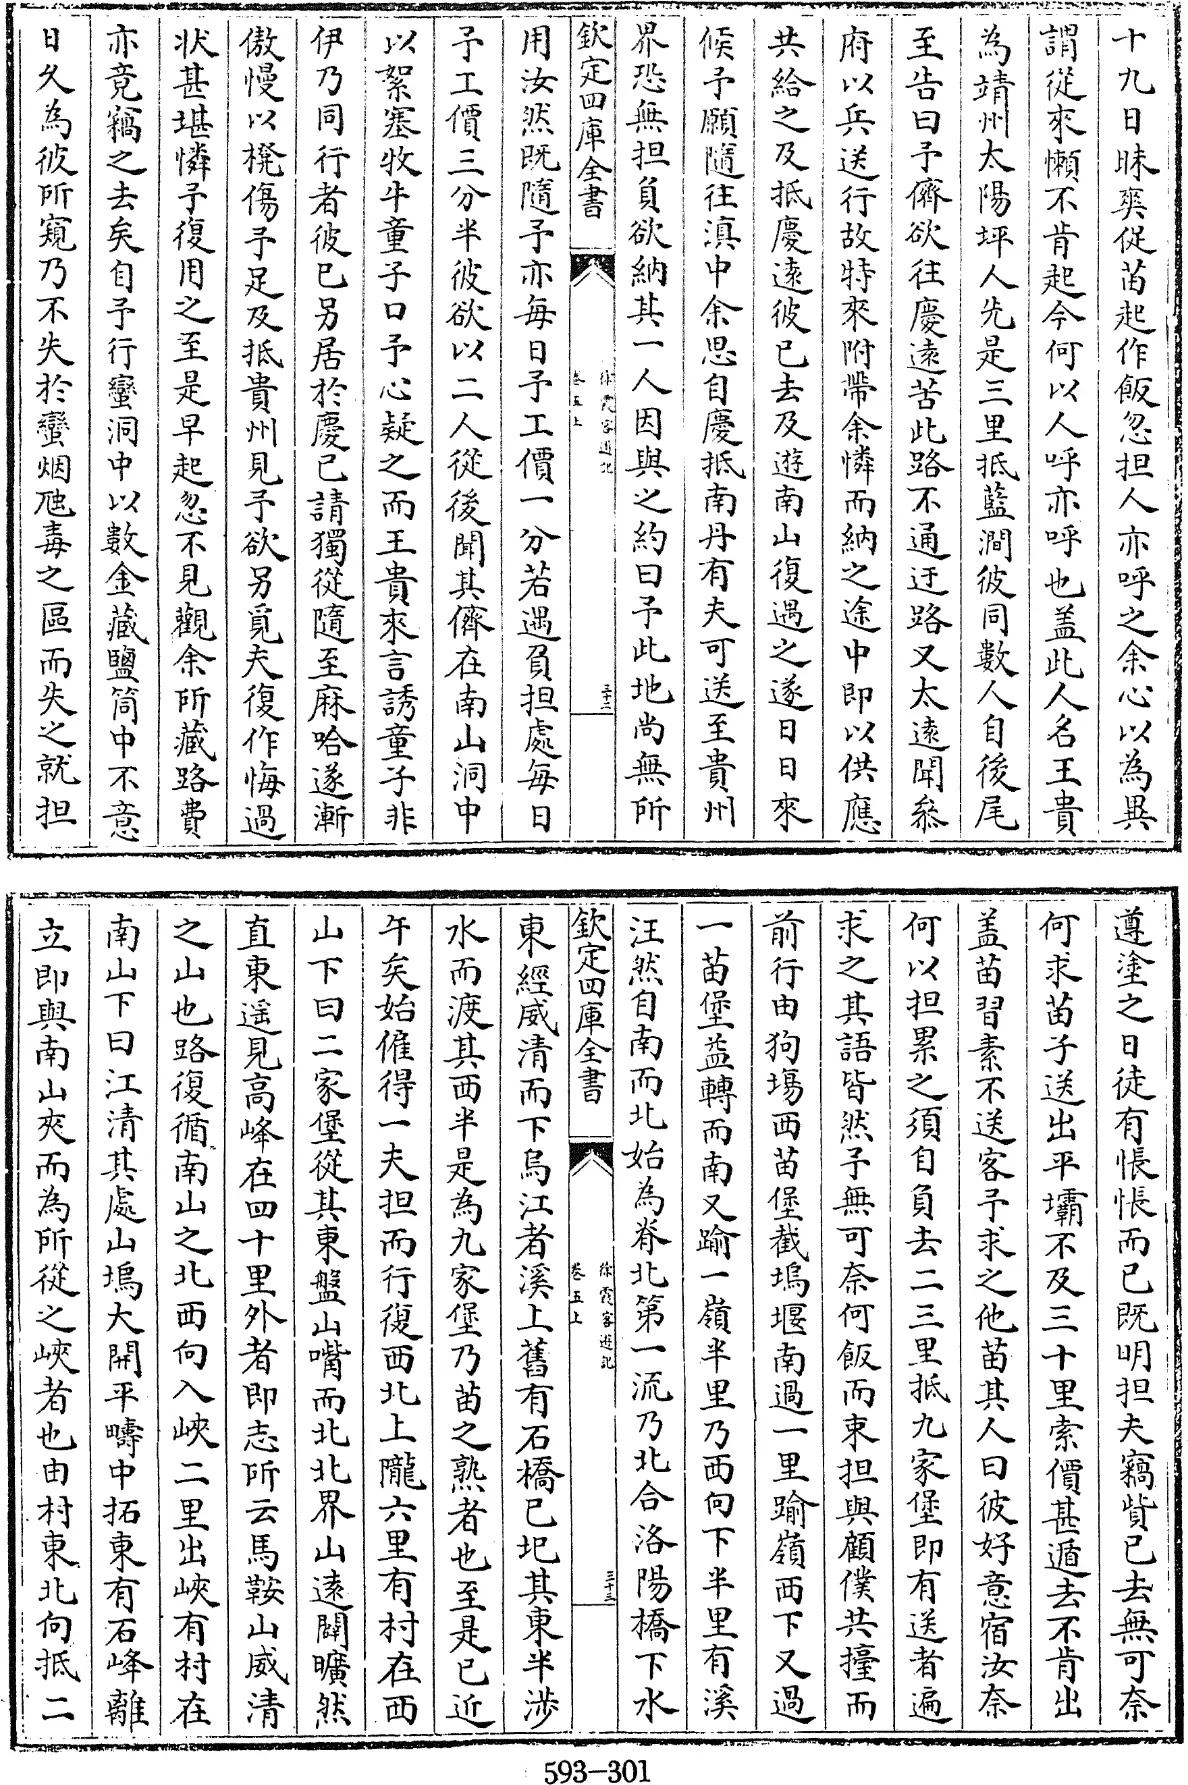 十九日昧爽從苗起作飯忽担人亦呼之余心以為異
謂從來懶不肯起今何以人呼亦呼也盖此人名王貴
為靖州太陽坪人先是三里抵藍澗彼同數人自後尾
至告曰予儕欲往慶遠苦此路不通迂路又太遠聞叅
府以兵送行故特來附帶余憐而納之途中即以供應
共給之及抵慶遠彼已去及遊南山復遇之遂日日來
候予願隨往滇中余思自慶抵南丹有夫可送至貴州
界恐無担負欲納其一人因與之約曰予此地尚無所
欽定四庫全書
徐霞客遊記
卷五上
三十二
用汝然既隨予亦毎日予工價一分若遇負担處毎日
予工價三分半彼欲以二人從後聞其儕在南山洞中
以絮塞牧牛童子口予心疑之而王貴來言誘童子非
伊乃同行者彼已另居於慶已請獨從隨至麻哈遂漸
傲慢以櫈傷予足及抵貴州見予欲另覓夫復作悔過
狀甚堪憐予復用之至是早起忽不見觀余所藏路費
亦竟竊之去矣自予行蠻洞中以數金藏鹽筒中不意
日久為彼所窺乃不失於蠻烟虺毒之區而失之就担
遵塗之日徒有悵悵而已既明担夫竊貲已去無可奈
何求苗子送出平壩不及三十里索價甚遁去不肯出
盖苗習素不送客予求之他苗其人曰彼好意宿汝奈
何以担累之須自負去二三里抵九家堡即有送者遍
求之其語皆然予無可奈何飯而束担與顧僕共擡而
前行由狗塲西苗堡截塢堰南過一里踰嶺西下又過
一苗堡益轉而南又踰一嶺半里乃西向下半里有溪
汪然自南而北始為脊北第一流乃北合洛陽橋下水
欽定四庫全書
徐霞客遊記
卷五上
三十三
東經威清而下烏江者溪上舊有石橋已圯其東半涉
水而渡其西半是為九家堡乃苗之熟者也至是已近
午矣始僱得一夫担而行復西北上隴六里有村在西
山下曰二家堡從其東盤山嘴而北北界山遠闢曠然
直東遥見高峰在四十里外者即志所云馬鞍山威清
之山也路復循南山之北西向入峽二里出峽有村在
南山下曰江清其處山塢大開平疇中拓東有石峰離
立即與南山夾而為所從之峽者也由村東北向抵二
593-301